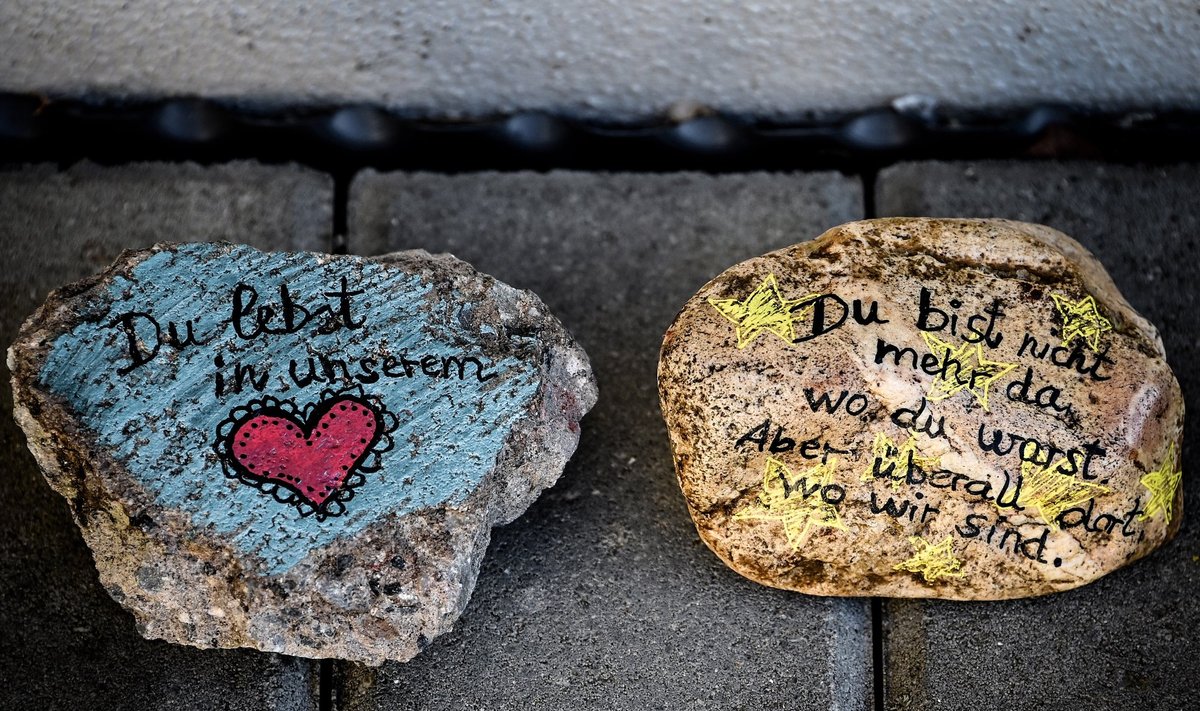 Du lebst
in unserem
Du bist nicht
mehr da,
wo du warst.
Aber überall dort,
wo wir sind.